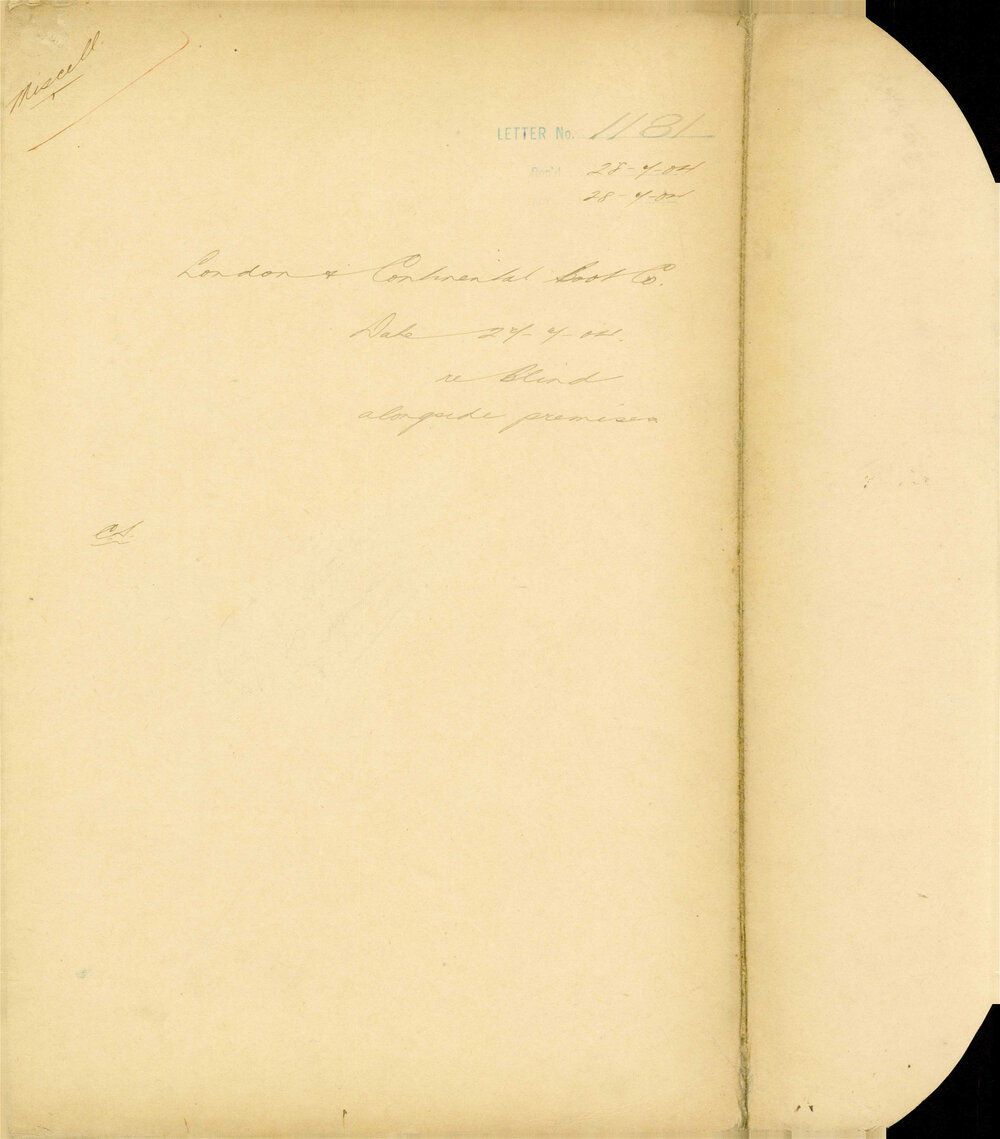 Miscell.
LETTER No. 1181
Rec'd 28-7-04
28-7-04
London & Continental Boot Co.
Date 27-7-04.
re Blind
alongside premises